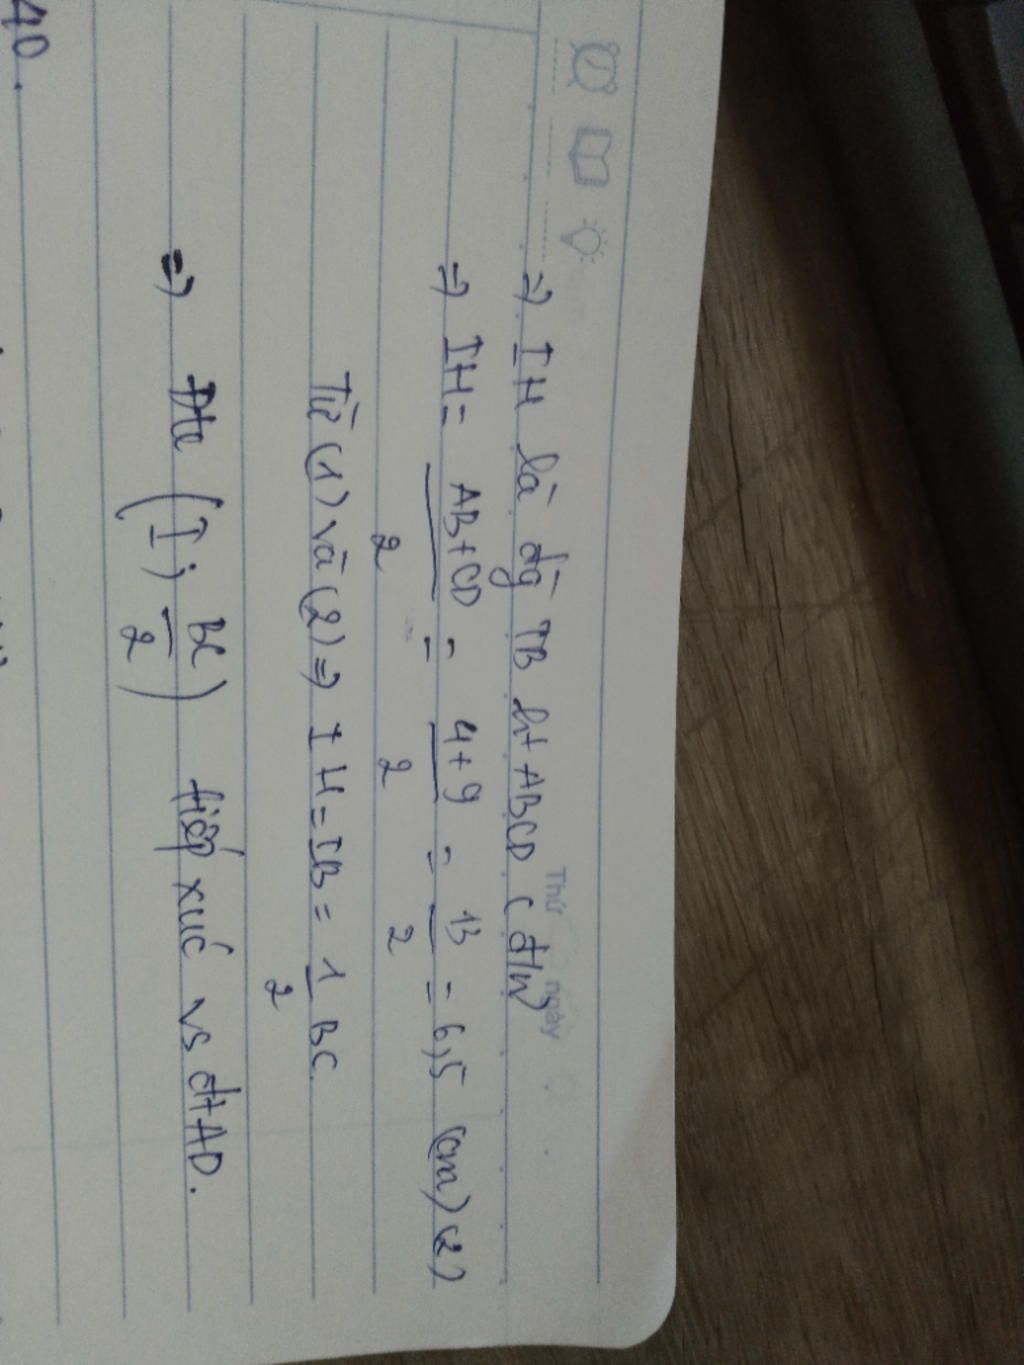 Thứ ngày
=> IH là đg TB ht ABCD (đ/n)
=> IH = AB+CD/2 = 4+9/2 = 13/2 = 6,5 (cm) (2)
Từ (1) và (2) => IH = IB = 1/2 BC.
=> Đtr (I; BC/2) tiếp xúc vs đt AD.
40.